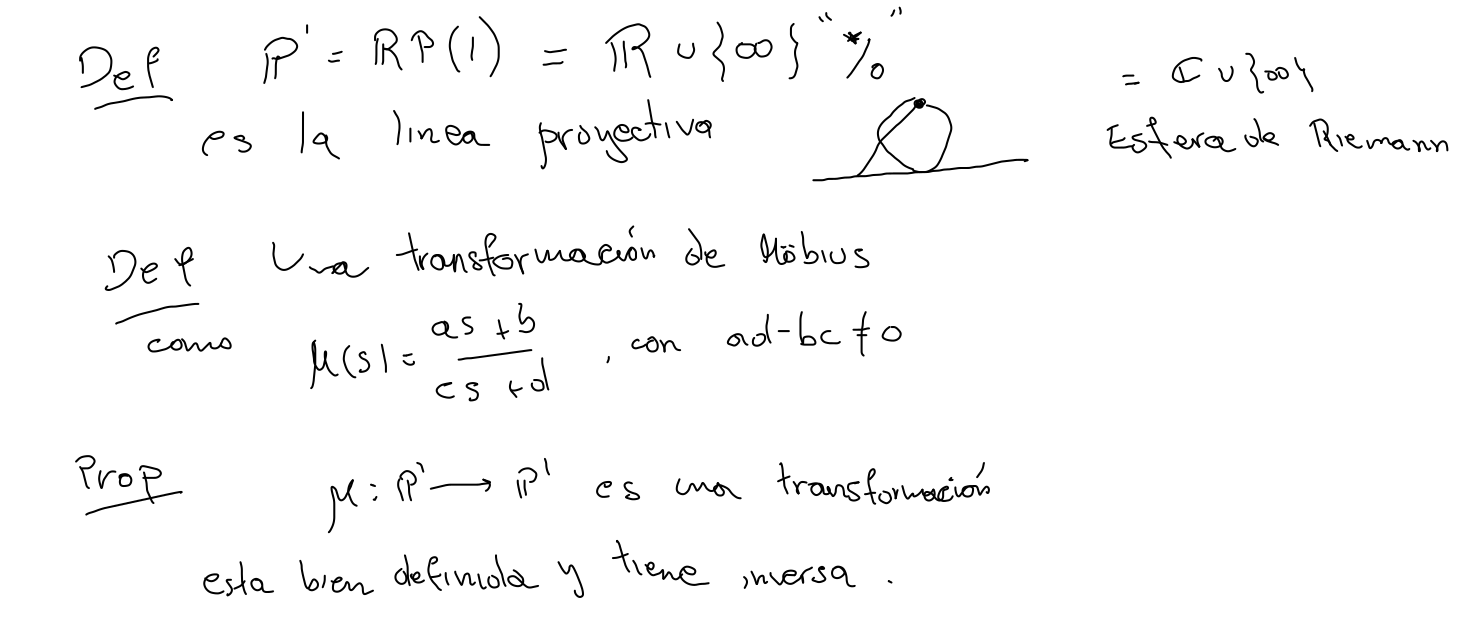 Def ℙ¹ = ℝP(1) = ℝ ∪ {∞} "*/₀"
es la linea proyectiva
= ℂ ∪ {∞}
Esfera de Riemann
Def Una transformación de Möbius
como μ(s) = (as + b)/(cs + d), con ad-bc ≠ 0
Prop μ : ℙ¹ → ℙ¹ es una transformación
esta bien definida y tiene inversa.